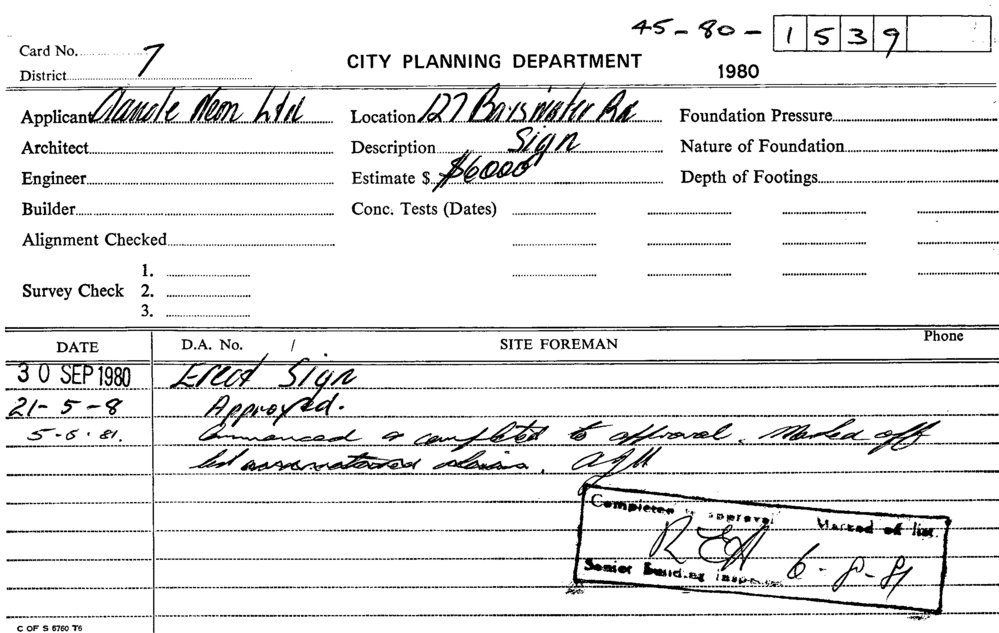 45-80-1539
Card No. 7
District
CITY PLANNING DEPARTMENT
1980
Applicant Claude Neon Ltd
Location 127 Bayswater Rd
Foundation Pressure
Architect
Description Sign
Nature of Foundation
Engineer
Estimate $ $6000
Depth of Footings
Builder
Conc. Tests (Dates)
Alignment Checked
1.
Survey Check 2.
3.
DATE D.A. No. / SITE FOREMAN Phone
30 SEP 1980 Erect Sign
21-5-8 Approved.
5-6-81. Commenced & completed to approval. Marked off
list
Completed to approval Marked of list.
6-8-81
Senior Building Inspector
C OF S 6760 T6